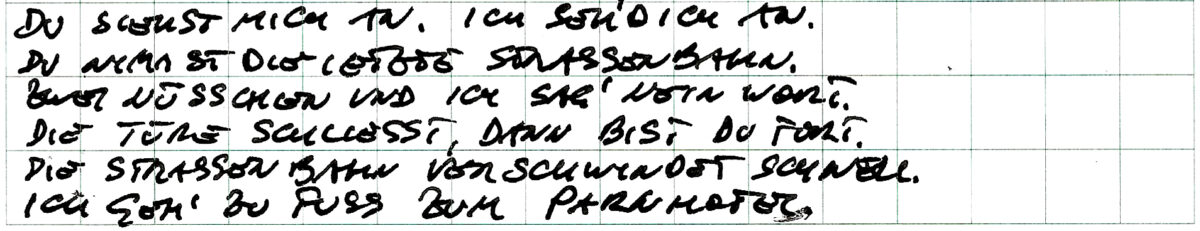 DU SIEHST MICH AN. ICH SEH' DICH AN.
DU NIMMST DIE LETZTE STRASSENBAHN.
ZWEI NÜSSCHEN UND ICH SAG' KEIN WORT.
DIE TÜRE SCHLIESST, DANN BIST DU FORT.
DIE STRASSENBAHN VERSCHWINDET SCHNELL.
ICH GEH' ZU FUSS ZUM PARKHOTEL.